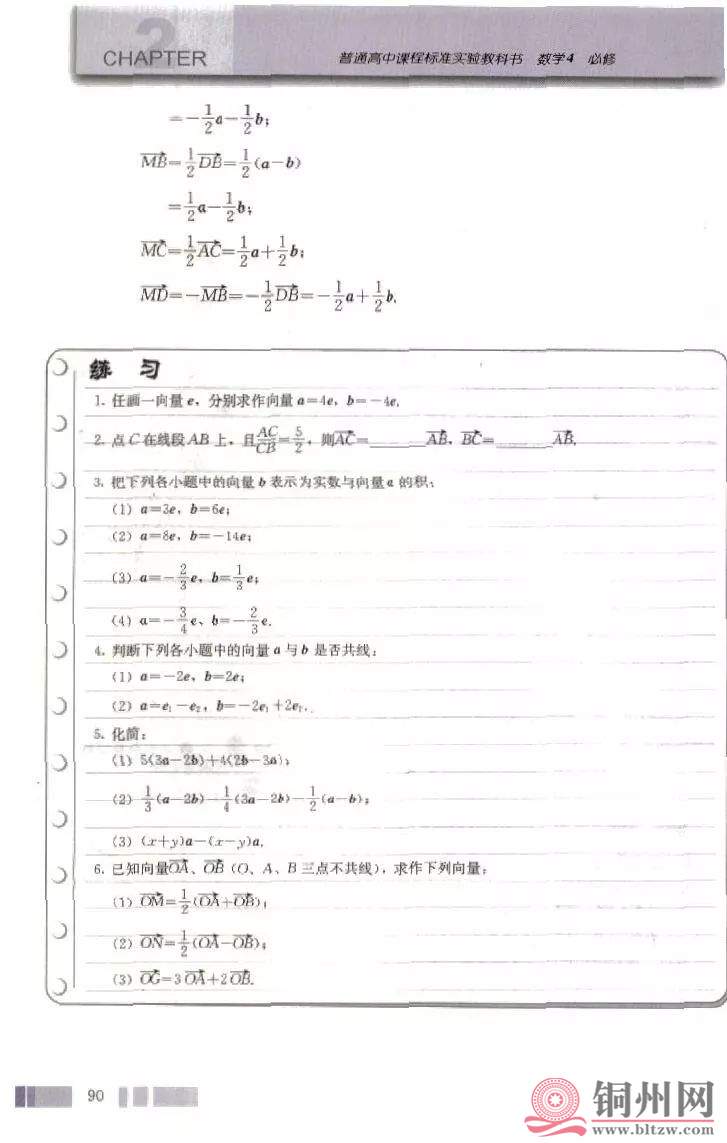 2
CHAPTER
普通高中课程标准实验教科书 数学4 必修
=-1/2a-1/2b;
MB→=1/2DB→=1/2(a-b)
=1/2a-1/2b;
MC→=1/2AC→=1/2a+1/2b;
MD→=-MB→=-1/2DB→=-1/2a+1/2b.
练 习
1. 任画一向量e,分别求作向量a=4e,b=-4e.
2. 点C在线段AB上,且AC/CB=5/2,则AC→=______AB→,BC→=______AB→.
3. 把下列各小题中的向量b表示为实数与向量a的积:
(1) a=3e,b=6e;
(2) a=8e,b=-14e;
(3) a=-2/3e,b=1/3e;
(4) a=-3/4e、b=-2/3e.
4. 判断下列各小题中的向量a与b是否共线:
(1) a=-2e,b=2e;
(2) a=e₁-e₂,b=-2e₁+2e₂.
5. 化简:
(1) 5(3a-2b)+4(2b-3a);
(2) 1/3(a-2b)-1/4(3a-2b)-1/2(a-b);
(3) (x+y)a-(x-y)a.
6. 已知向量OA→、OB→(O、A、B三点不共线),求作下列向量:
(1) OM→=1/2(OA→+OB→);
(2) ON→=1/2(OA→-OB→);
(3) OG→=3OA→+2OB→.
90
铜州网
www.bltzw.com